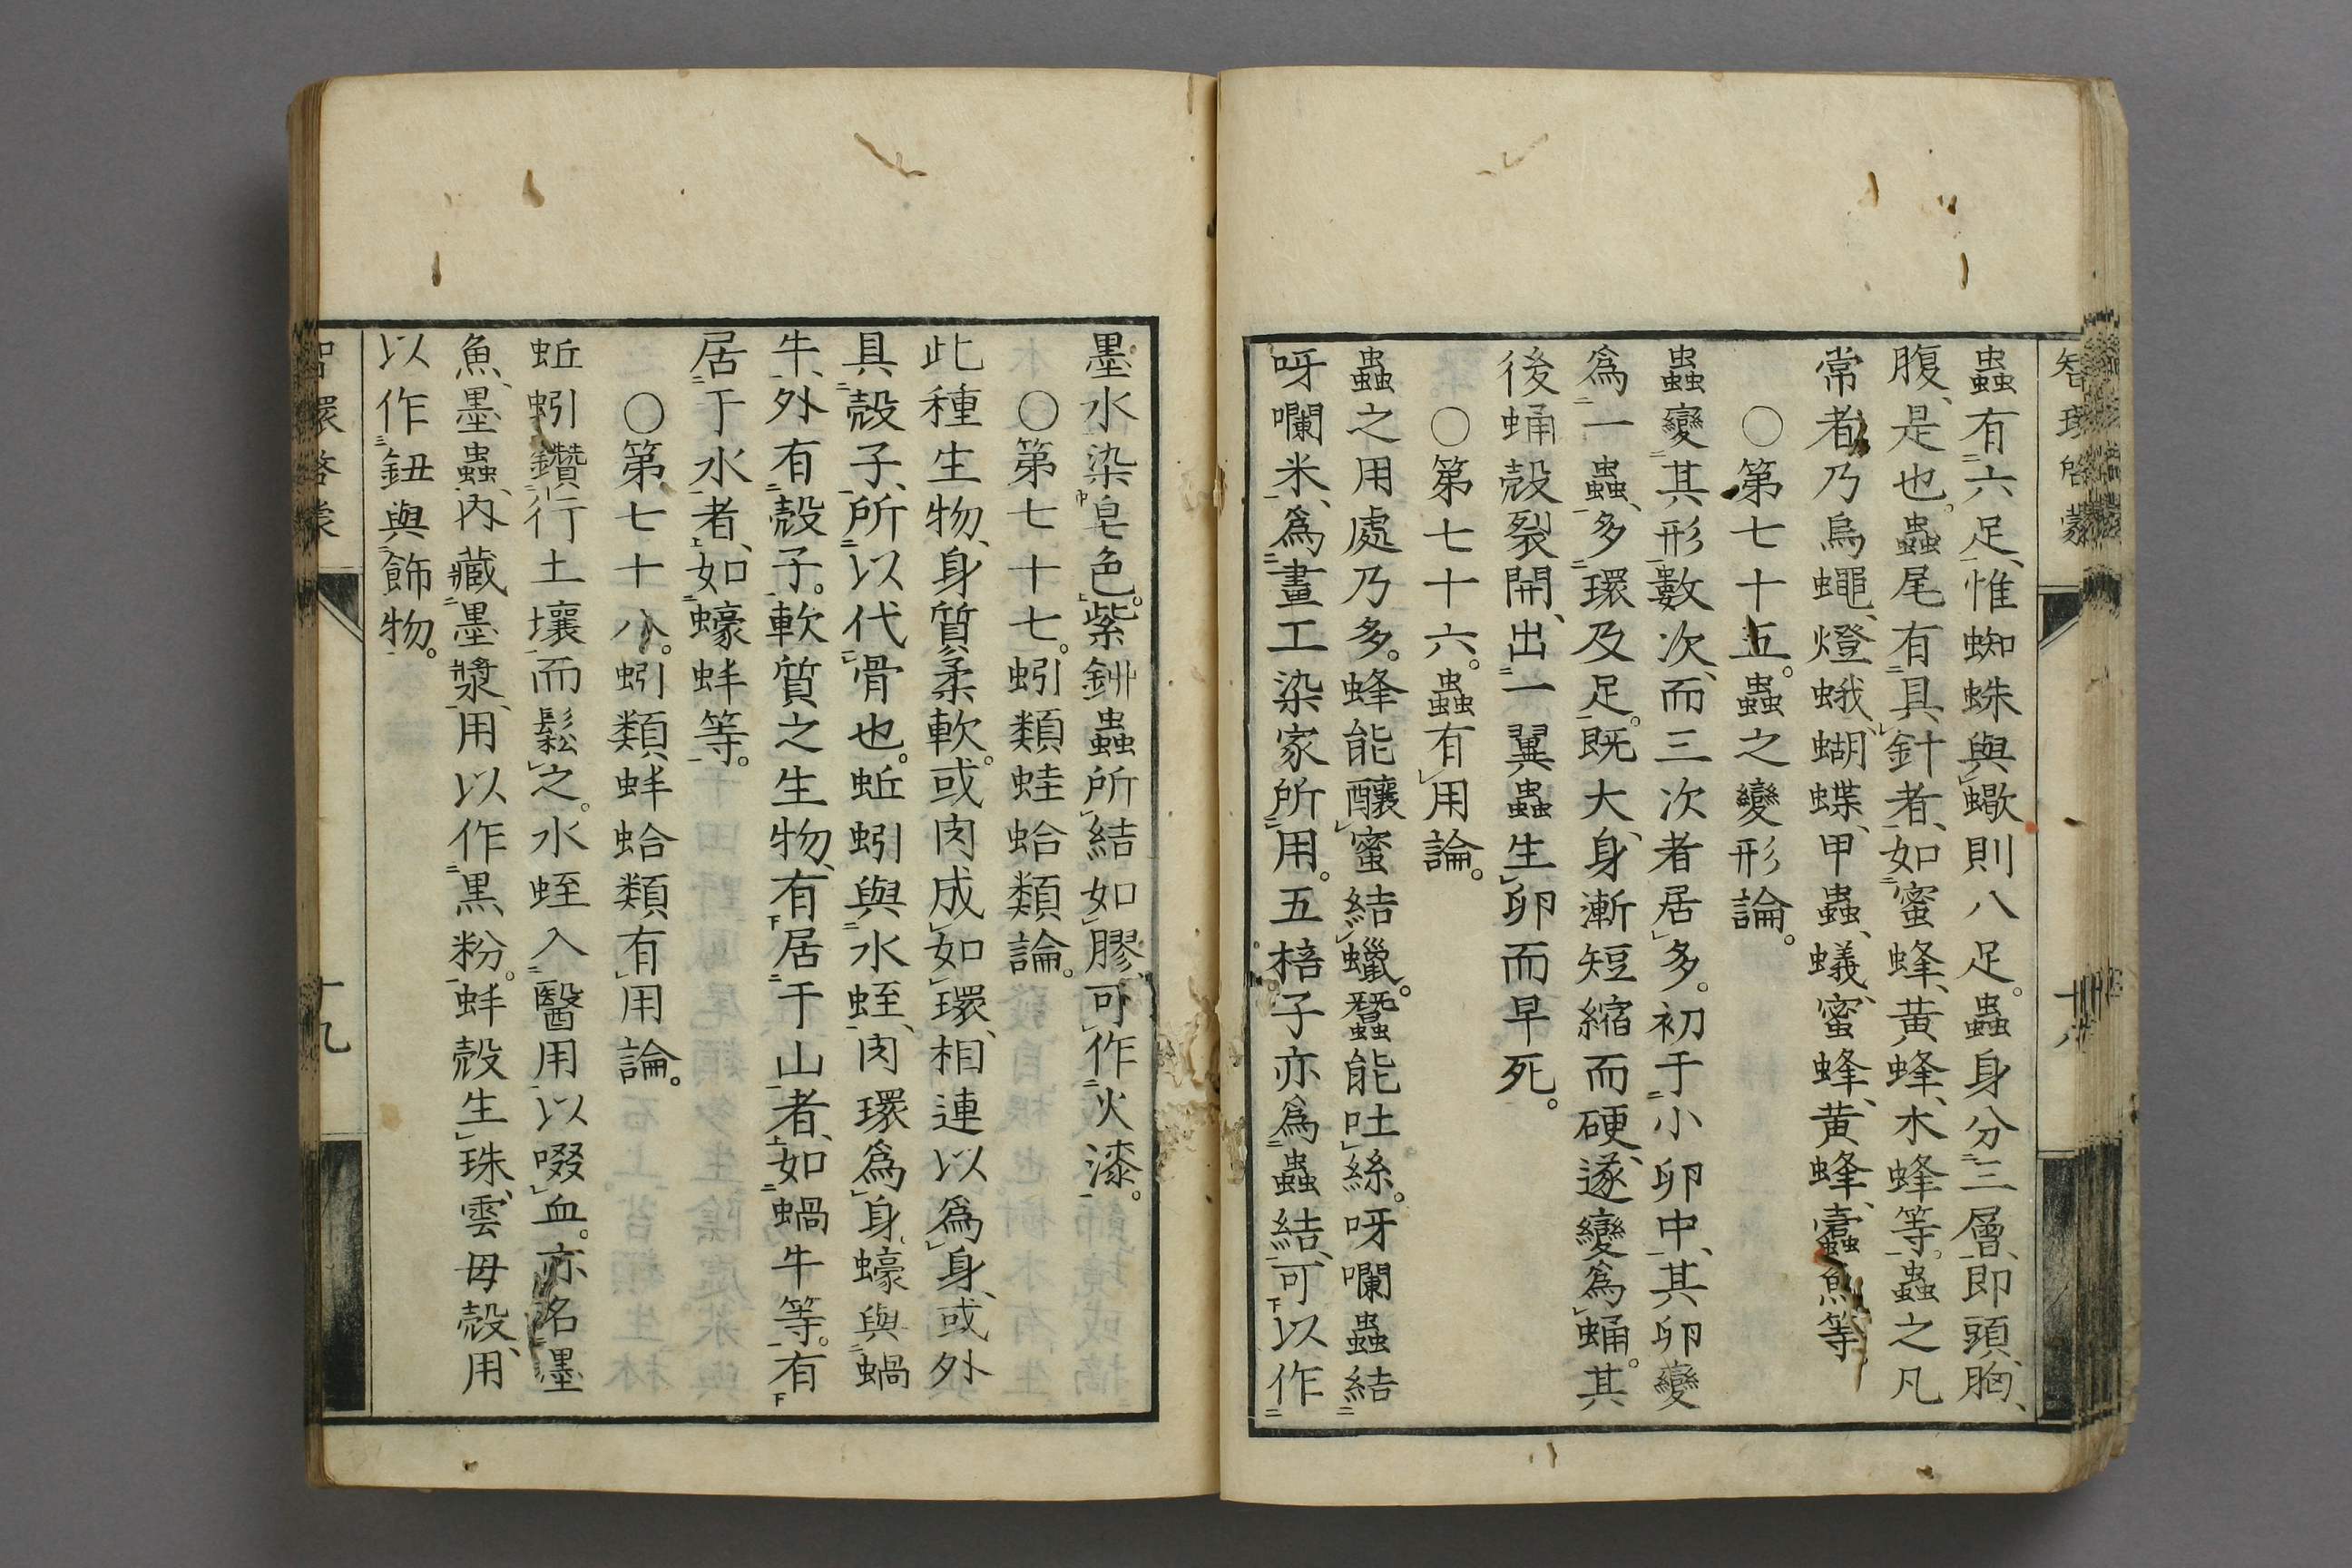 智環啓蒙
蟲有六足、惟蜘蛛與蠍則八足。蟲身分三層、即頭、胸、
腹、是也。蟲尾有具針者、如蜜蜂、黃蜂、木蜂等。蟲之凡
常者、乃烏蠅、燈蛾、蝴蝶、甲蟲、蟻、蜜蜂、黃蜂、蠹魚等。
○第七十五。蟲之變形論。
蟲變其形數次、而三次者居多。初于小卵中、其卵變
爲一蟲、多環及足。既大、身漸短縮而硬、遂變爲蛹。其
後蛹殼裂開、出一翼蟲生卵而早死。
○第七十六。蟲有用論。
蟲之用處乃多。蜂能釀蜜結蠟。蠶能吐絲。呀囒蟲結
呀囒米、爲畫工染家所用。五棓子亦爲蟲結、可以作
墨水染皂色。紫鉚蟲所結如膠、可作火漆。
○第七十七。蚓類蛙蛤類論。
此種生物、身質柔軟。或肉成如環、相連以爲身、或外
具殼子、所以代骨也。蚯蚓與水蛭、肉環爲身、蠔與蝸
牛、外有殼子。軟質之生物、有居于山者、如蝸牛等。有
居于水者、如蠔蚌等。
○第七十八。蚓類蚌蛤類有用論。
蚯蚓鑽行土壤而鬆之。水蛭入醫用以啜血。亦名墨
魚、墨蟲、內藏墨漿、用以作黑粉。蚌殼生珠、雲母殼、用
以作鈕與飾物。
智環啓蒙
十九